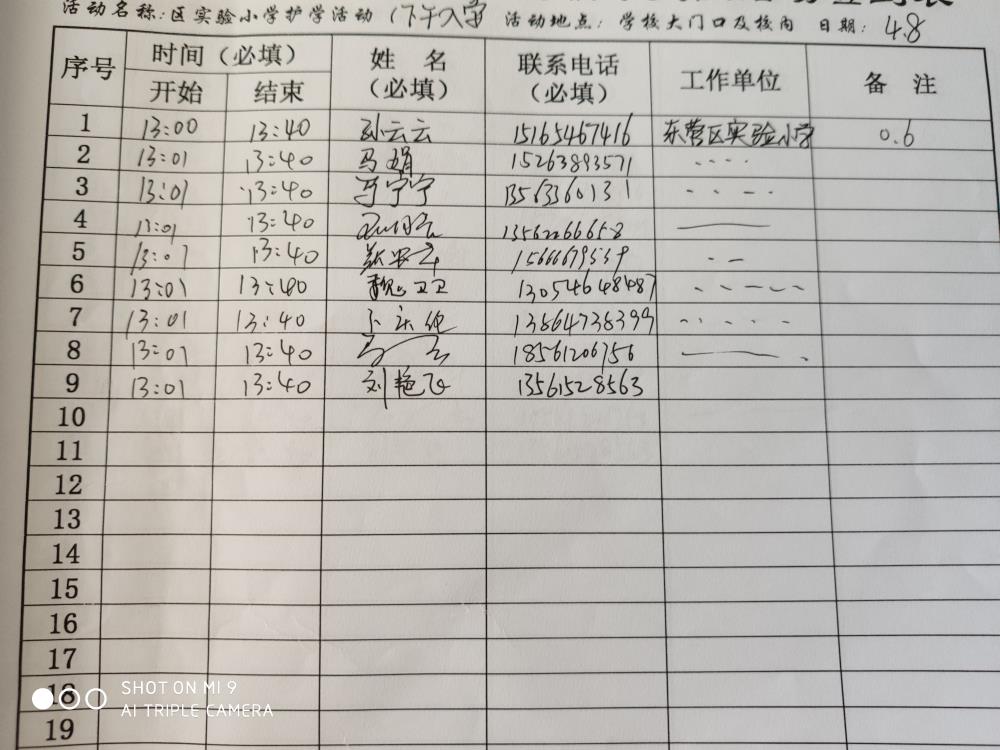 活动名称:区实验小学护学活动(下午入学 活动地点:学校大门口及校内 日期:4.8
序号 时间(必填) 姓名(必填) 联系电话(必填) 工作单位 备注
开始 结束
1 13:00 13:40 孙云云 15165467416 东营区实验小学 0.6
2 13:01 13:40 马娟 15263893571
3 13:01 13:40 宁宁 13563360131
4 13:01 13:40 13562266658
5 13:01 13:40
6 13:01 13:40 魏卫卫 13054648487
7 13:01 13:40 13864738399
8 13:01 13:40 18561206756
9 13:01 13:40 刘艳飞 13561528563
10
11
12
13
14
15
16
17
18
19
SHOT ON MI 9
AI TRIPLE CAMERA